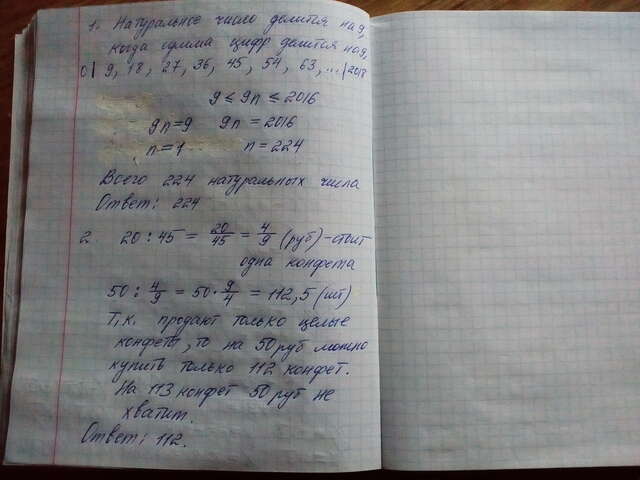 1. Натуральное число делится на 9,
когда сумма цифр делится на 9,
0| 9, 18, 27, 36, 45, 54, 63, ... |2018
9 ≤ 9n ≤ 2016
9n = 9 9n = 2016
n = 1 n = 224
Всего 224 натуральных числа
Ответ: 224
2 20 : 45 = 20/45 = 4/9 (руб) – стоит
одна конфета
50 : 4/9 = 50 · 9/4 = 112,5 (шт)
Т.к. продают только целые
конфеты, то на 50 руб можно
купить только 112 конфет.
На 113 конфет 50 руб не
хватит.
Ответ: 112.